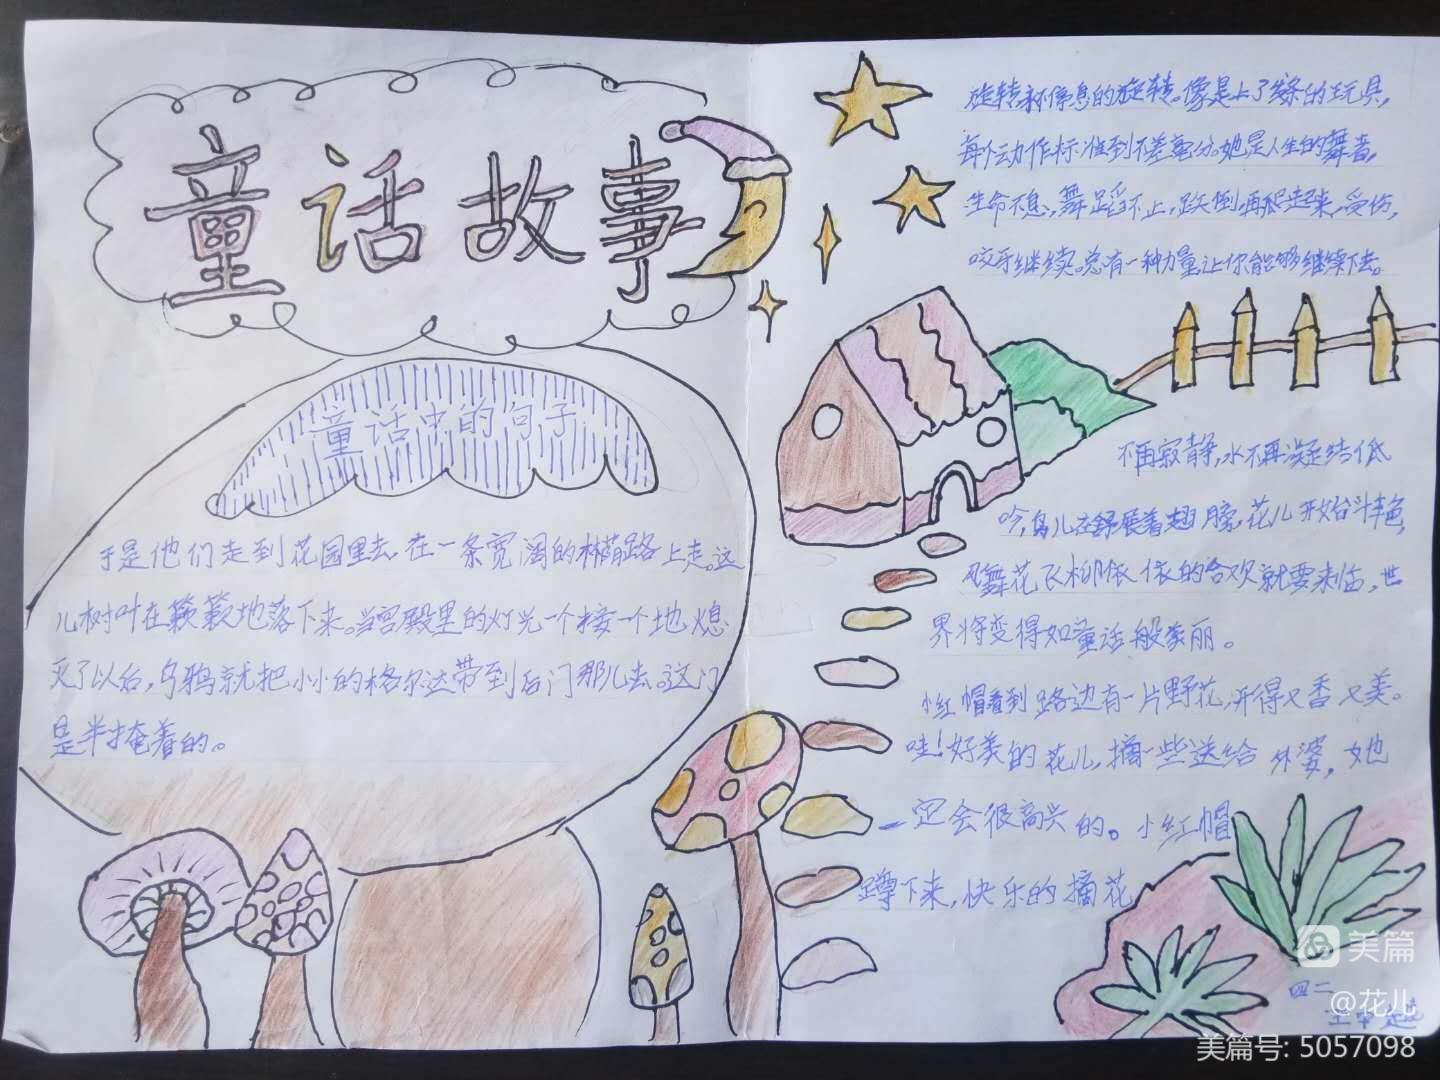 童话故事
童话中的句子
于是他们走到花园里去,在一条宽阔的林荫路上走。这
儿树叶在簌簌地落下来。当宫殿里的灯光一个接一个地熄
灭了以后,乌鸦就把小小的格尔达带到后门那儿去。这门
是半掩着的。
旋转,不停息的旋转。像是上了发条的玩具,
每个动作标准到不差毫分。她是人生的舞者,
生命不息,舞蹈不止,跌倒,再爬起来,受伤,
咬牙继续。总有一种力量让你能够继续下去。
不再寂静,水不再凝结低
吟,鸟儿在舒展着翅膀,花儿开始斗艳,
风舞花飞柳依依的合欢就要来临,世
界将变得如童话般豪丽。
小红帽看到路边有一片野花,开得又香又美。
哇!好美的花儿,摘一些送给外婆,她
一定会很高兴的。小红帽
蹲下来,快乐的摘花
四二
美篇
@花儿
美篇号: 5057098